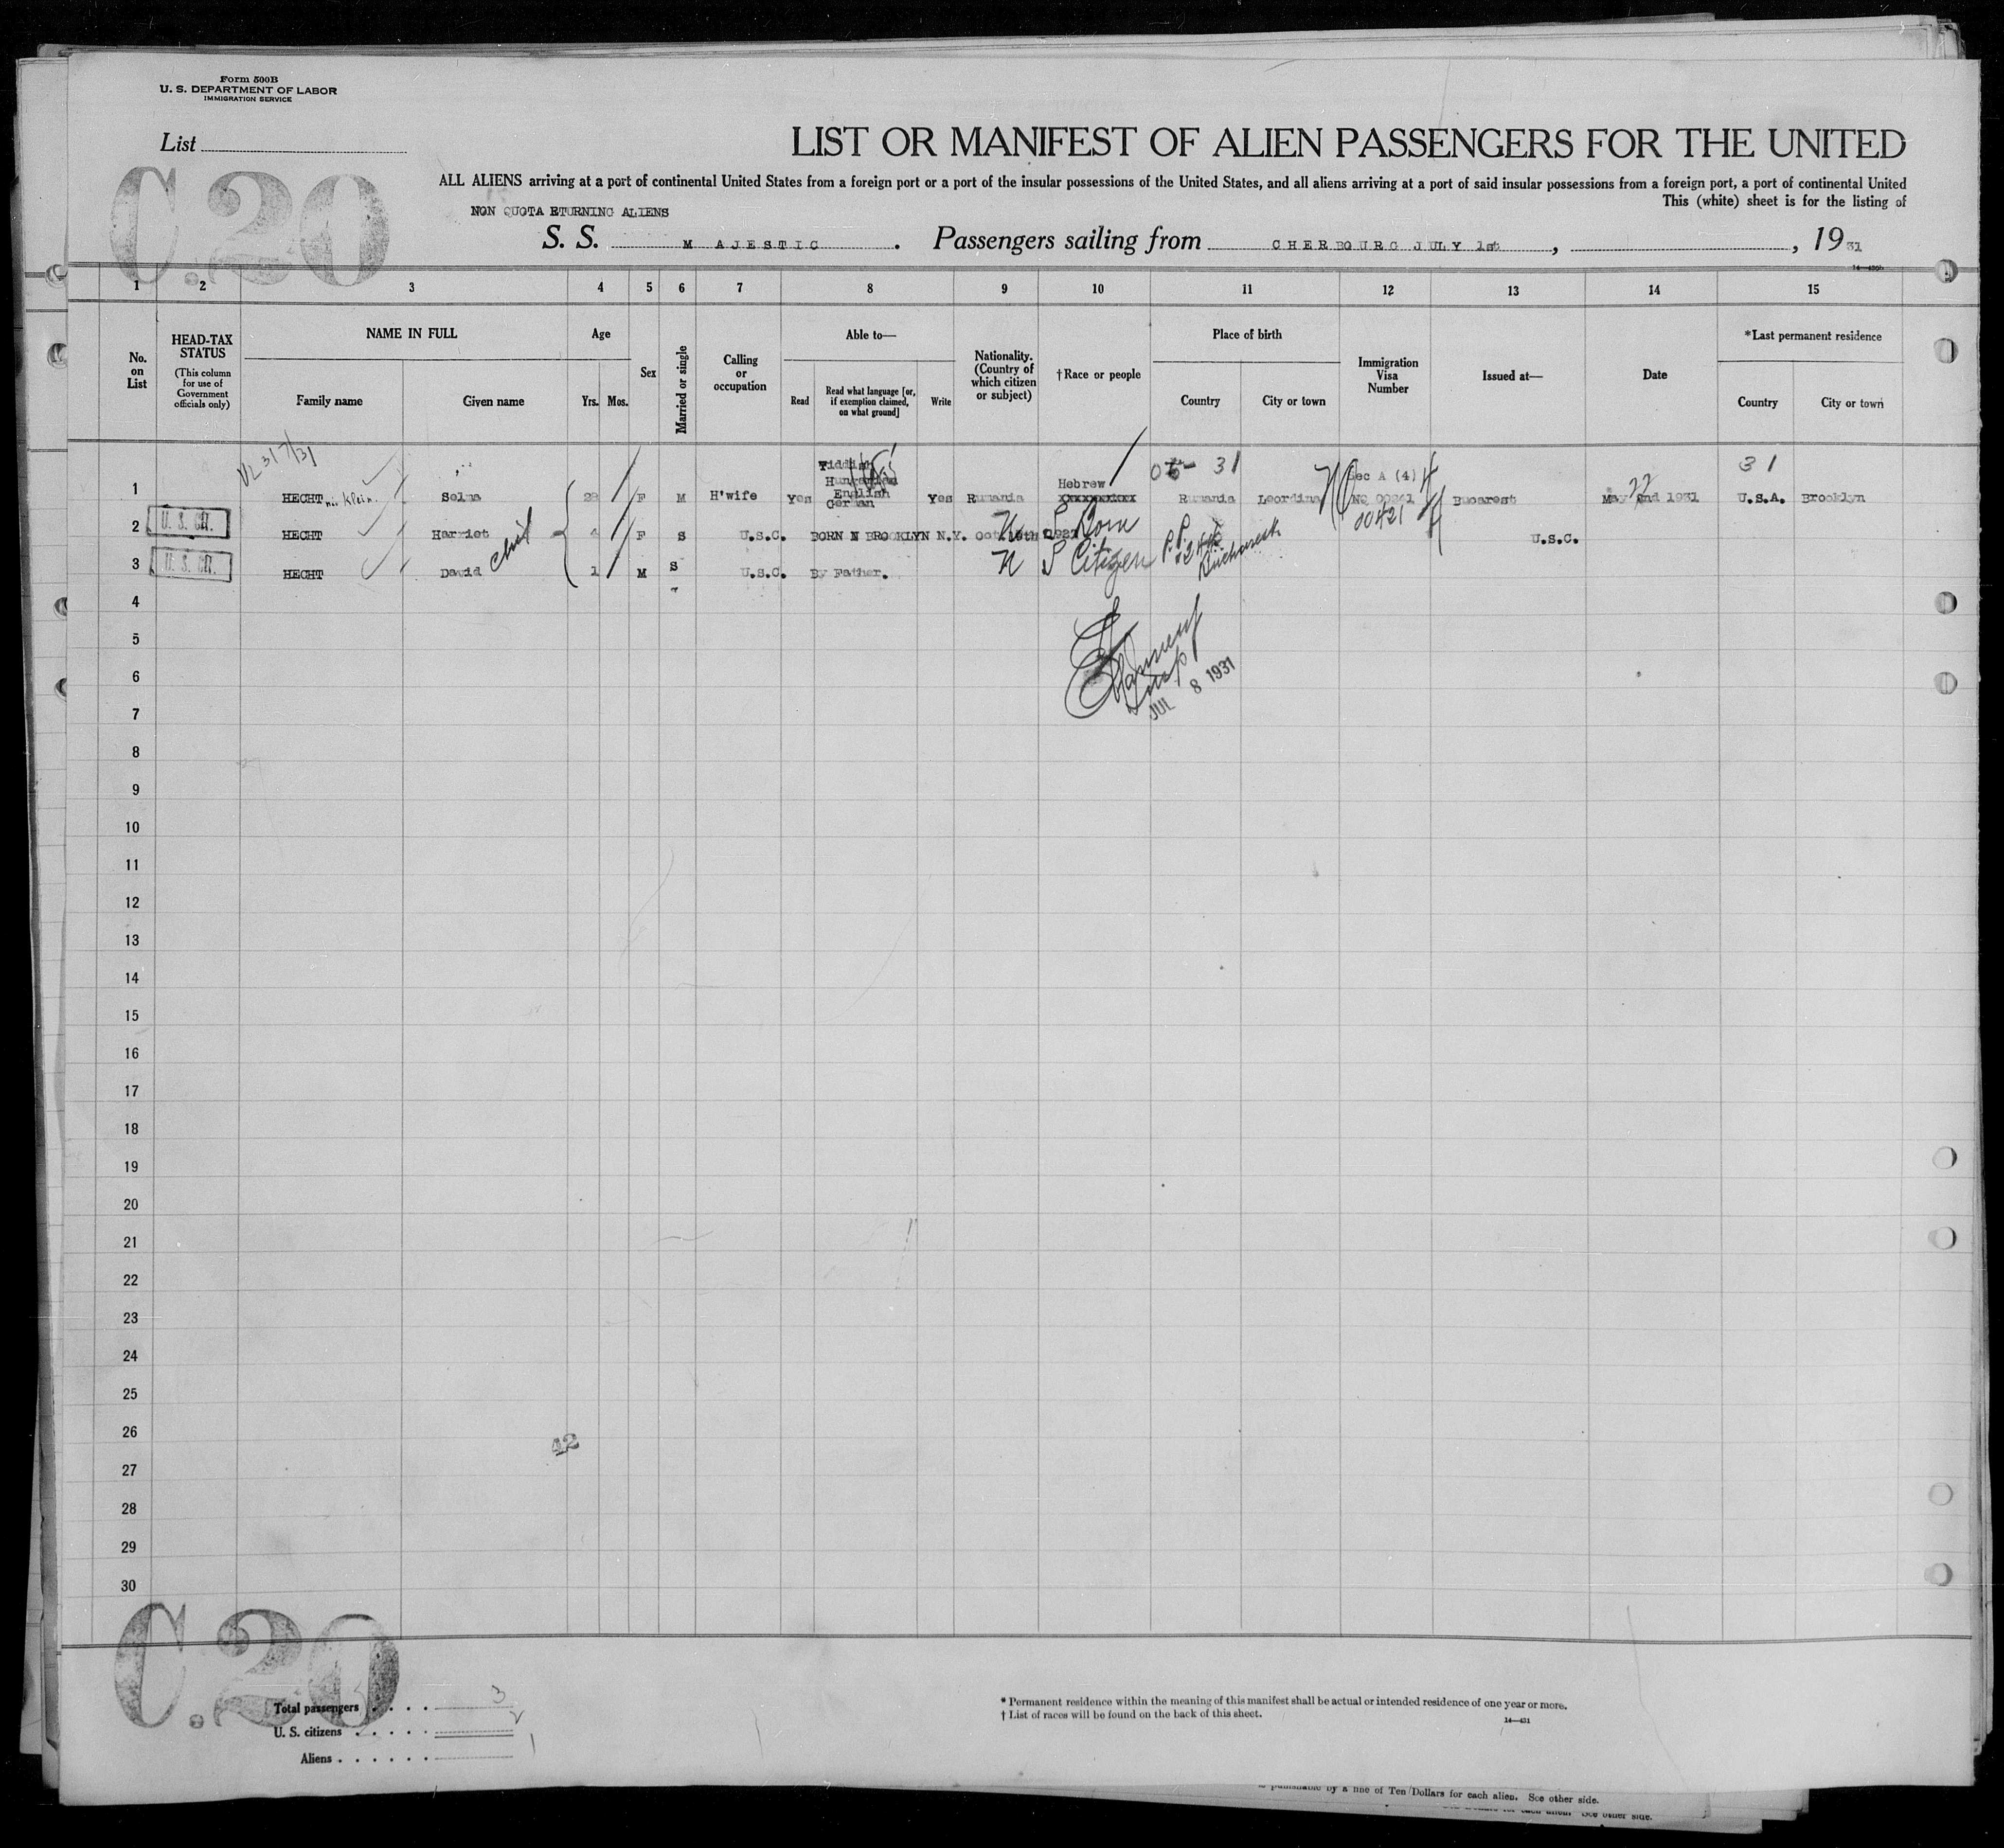 Form 500B
U. S. DEPARTMENT OF LABOR
IMMIGRATION SERVICE
List
C.20
LIST OR MANIFEST OF ALIEN PASSENGERS FOR THE UNITED
ALL ALIENS arriving at a port of continental United States from a foreign port or a port of the insular possessions of the United States, and all aliens arriving at a port of said insular possessions from a foreign port, a port of continental United
This (white) sheet is for the listing of
NON QUOTA ETURNING ALIENS
S. S. M AJESTIC . Passengers sailing from CHERBOURG JULY 1st , , 1931
1 2 3 4 5 6 7 8 9 10 11 12 13 14 15
No. on List
HEAD-TAX STATUS
(This column for use of Government officials only)
NAME IN FULL
Family name
Given name
Age
Yrs. Mos.
Sex
Married or single
Calling or occupation
Able to—
Read
Read what language [or, if exemption claimed, on what ground]
Write
Nationality. (Country of which citizen or subject)
†Race or people
Place of birth
Country
City or town
Immigration Visa Number
Issued at—
Date
*Last permanent residence
Country
City or town
Yiddish
Hungarian
English
German
Hebrew
31
Sec A (4)
31
1 HECHT Klein. Selma 28 F M H'wife Yes Yes Rumania xxxxxxxxxx Rumania Leordina NO 00241 Bucarest May 2nd 1931 U.S.A. Brooklyn
00421
22
2 U. S. Cit. HECHT Harriet 4 F S U.S.C. BORN N BROOKLYN N.Y. Oct 1927 U S Born U.S.C.
child
3 U. S. Cit. HECHT David 1 M S U.S.C. By Father. U S Citizen P.P. Bucharest
4
5
6
Insp
JUL 8 1931
7
8
9
10
11
12
13
14
15
16
17
18
19
20
21
22
23
24
25
26
42
27
28
29
30
C.20
Total passengers . . . . 3
U. S. citizens . . . . . 2
Aliens . . . . . . 1
* Permanent residence within the meaning of this manifest shall be actual or intended residence of one year or more.
† List of races will be found on the back of this sheet.
14—431
punishable by a fine of Ten Dollars for each alien. See other side.
See other side.